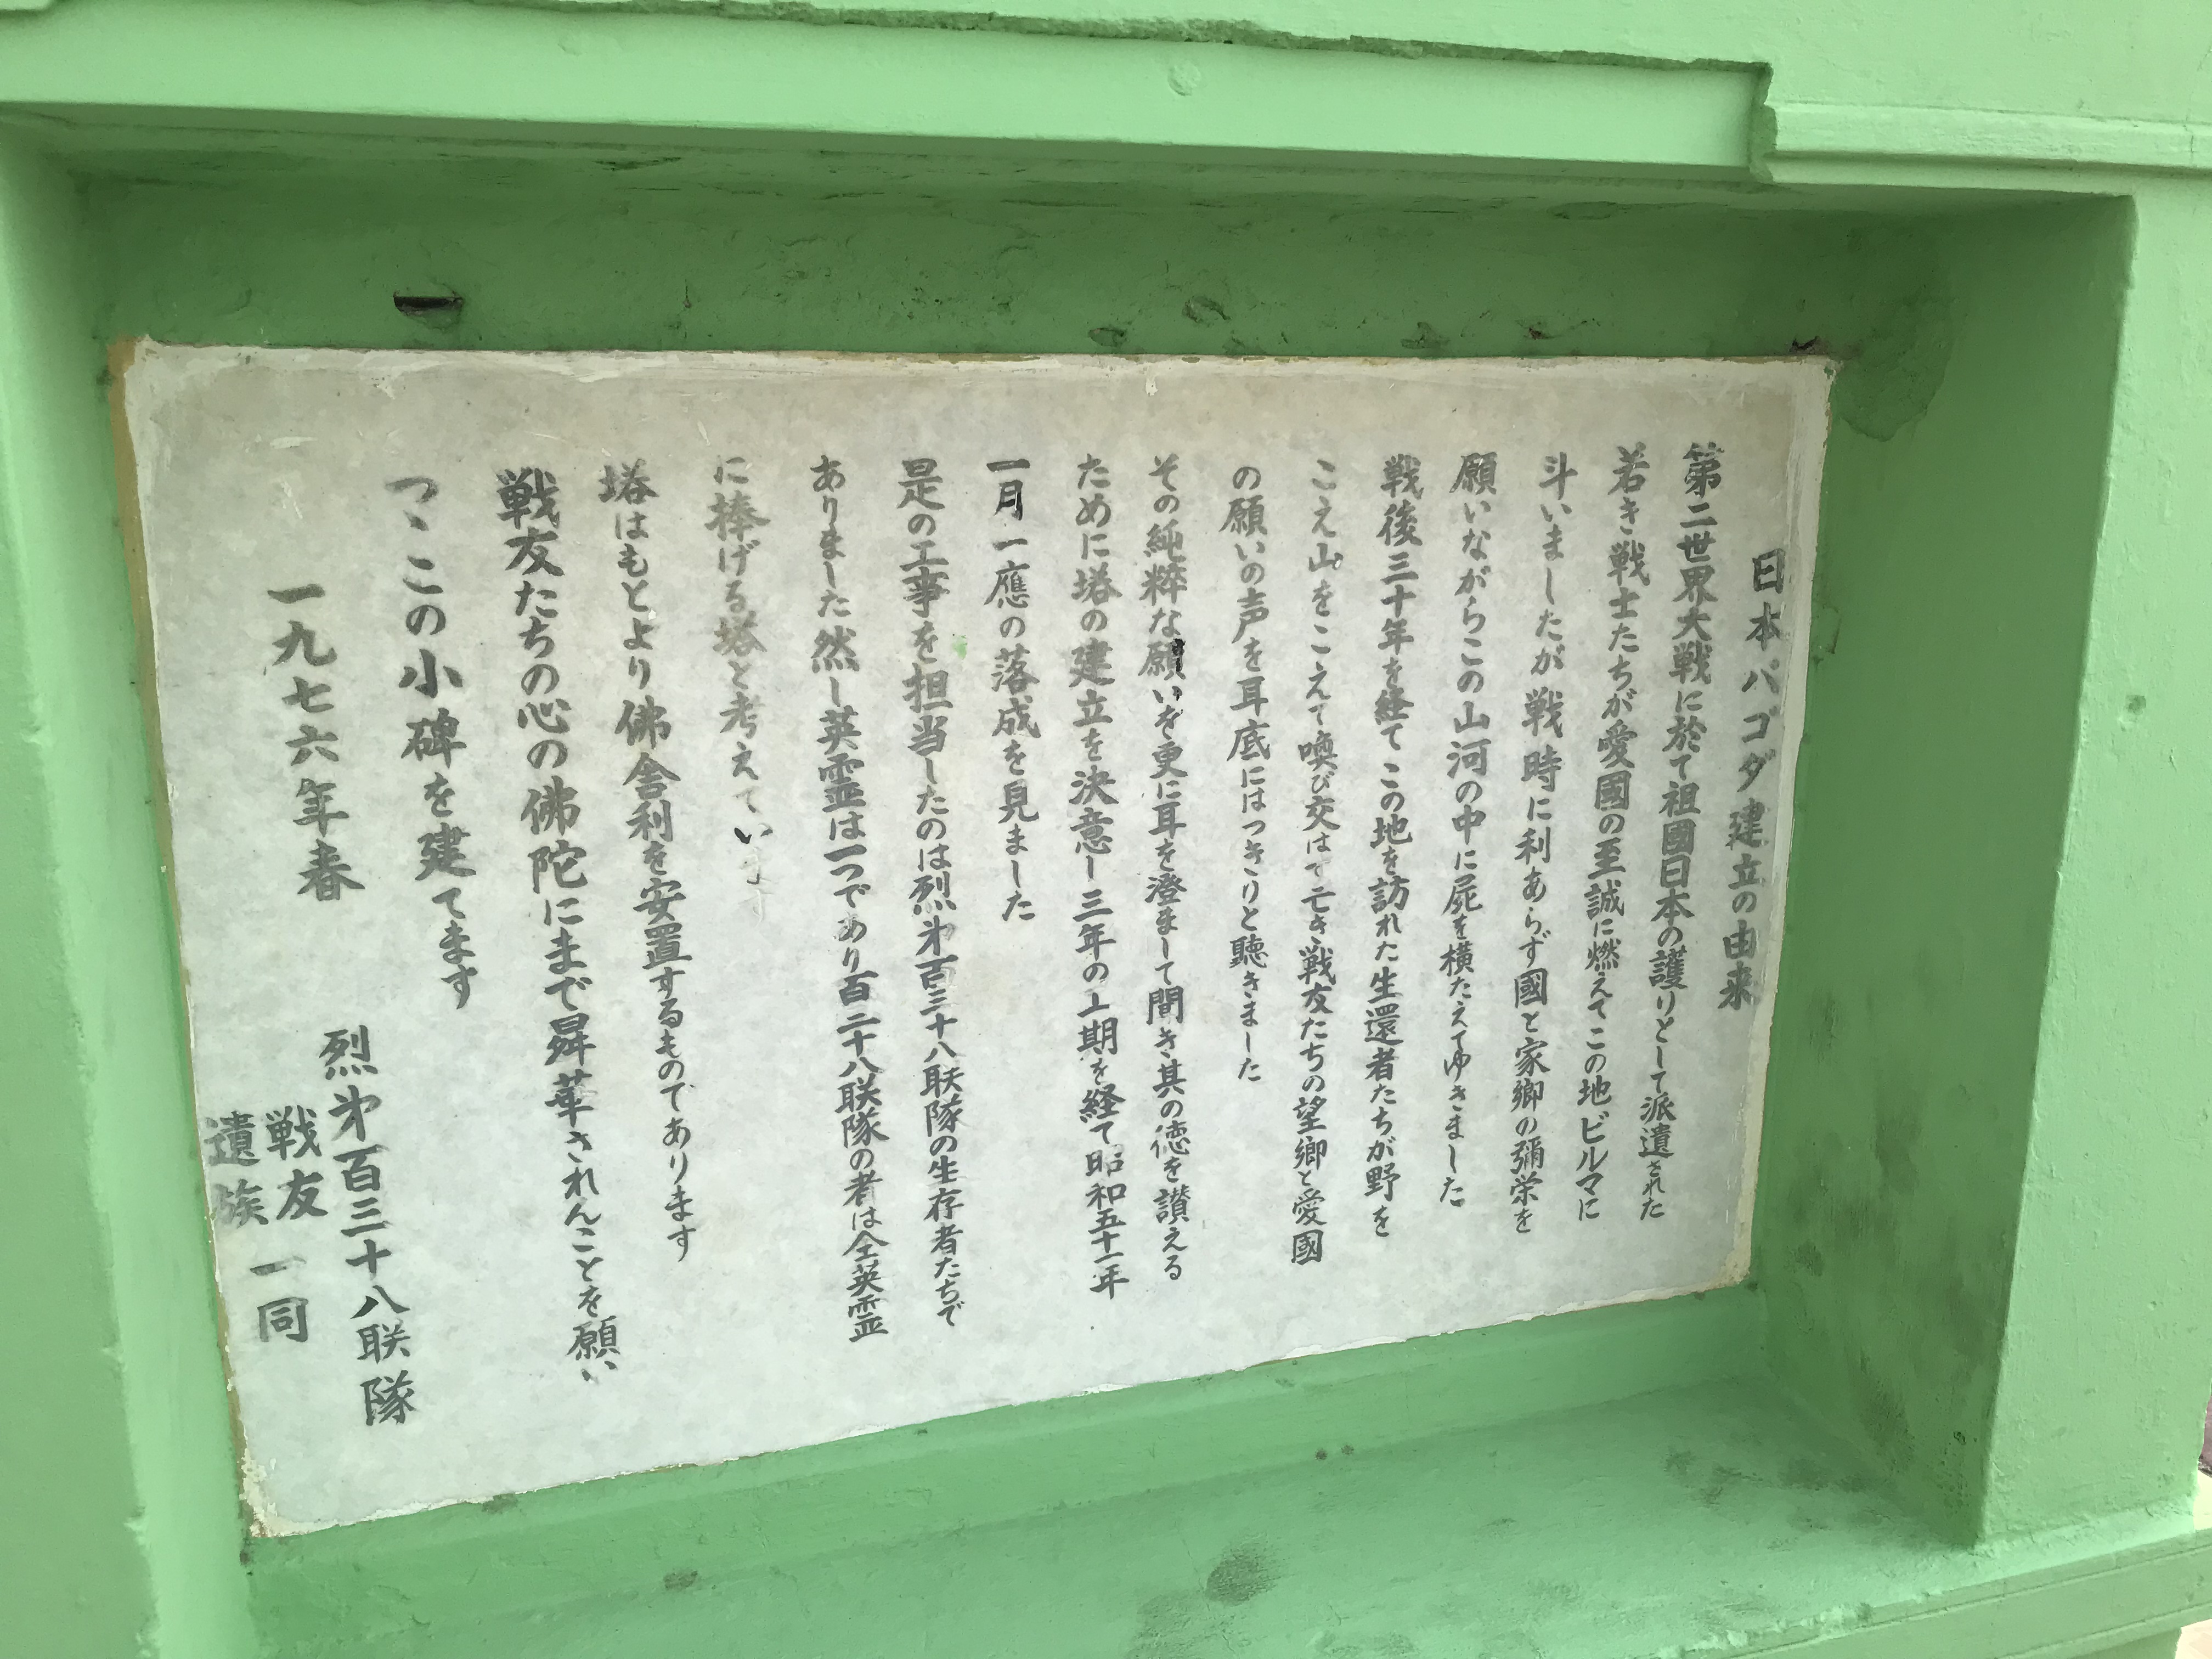 日本パゴダ建立の由来
第二世界大戦に於て祖國日本の護りとして派遣された
若き戦士たちが愛國の至誠に燃えてこの地ビルマに
斗いましたが戦時に利あらず國と家郷の彌栄を
願いながらこの山河の中に屍を横たえてゆきました
戦後三十年を経てこの地を訪れた生還者たちが野を
こえ山をこえて喚び交はす亡き戦友たちの望郷と愛國
の願いの声を耳底にはっきりと聴きました
その純粋な願いを更に耳を澄まして聞き其の徳を讃える
ために塔の建立を決意し三年の上期を経て昭和五十一年
一月一應の落成を見ました
是の工事を担当したのは烈㐧百三十八联隊の生存者たちで
ありました然し英霊は一つであり百二十八联隊の者は全英霊
に捧げる塔と考えています
塔はもとより佛舎利を安置するものであります
戦友たちの心の佛陀にまで昇華されんことを願い
つゝこの小碑を建てます
一九七六年春
烈㐧百三十八联隊
戦友
遺族一同